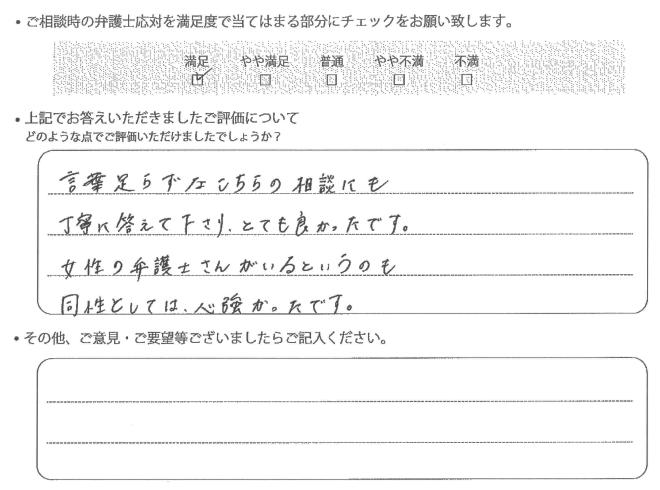 ・ご相談時の弁護士応対を満足度で当てはまる部分にチェックをお願い致します。
満足 やや満足 普通 やや不満 不満
☑ □ □ □ □
・上記でお答えいただきましたご評価について
どのような点でご評価いただけましたでしょうか？
言葉足らずなこちらの相談にも
丁寧に答えて下さり、とても良かったです。
女性の弁護士さんがいるというのも
同性としては、心強かったです。
・その他、ご意見・ご要望等ございましたらご記入ください。